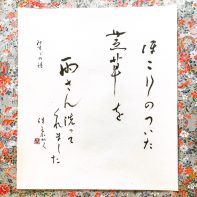 ほこりのついた
芝草を
雨さん洗って
くれました
みすゞの詩